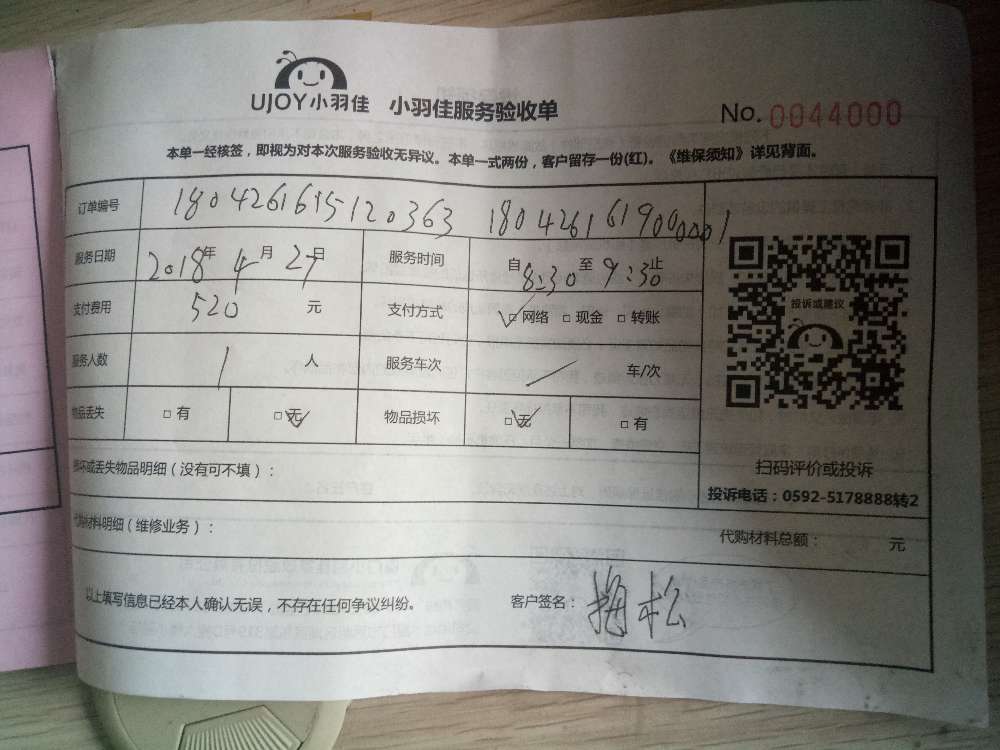 UJOY小羽佳 小羽佳服务验收单 No. 0044000
本单一经核签，即视为对本次服务验收无异议。本单一式两份，客户留存一份(红)。《维保须知》详见背面。
订单编号 180426161512 0363 180426161900001
服务日期 2018年4月27日 服务时间 自8:30至9:30止
支付费用 520 元 支付方式 □网络 □现金 □转账
服务人数 1 人 服务车次 / 车/次
物品丢失 □有 □无 物品损坏 □无 □有
投诉或建议
扫码评价或投诉
投诉电话：0592-5178888转2
损坏或丢失物品明细（没有可不填）：
代购材料明细（维修业务）： 代购材料总额： 元
以上填写信息已经本人确认无误，不存在任何争议纠纷。 客户签名：梅松